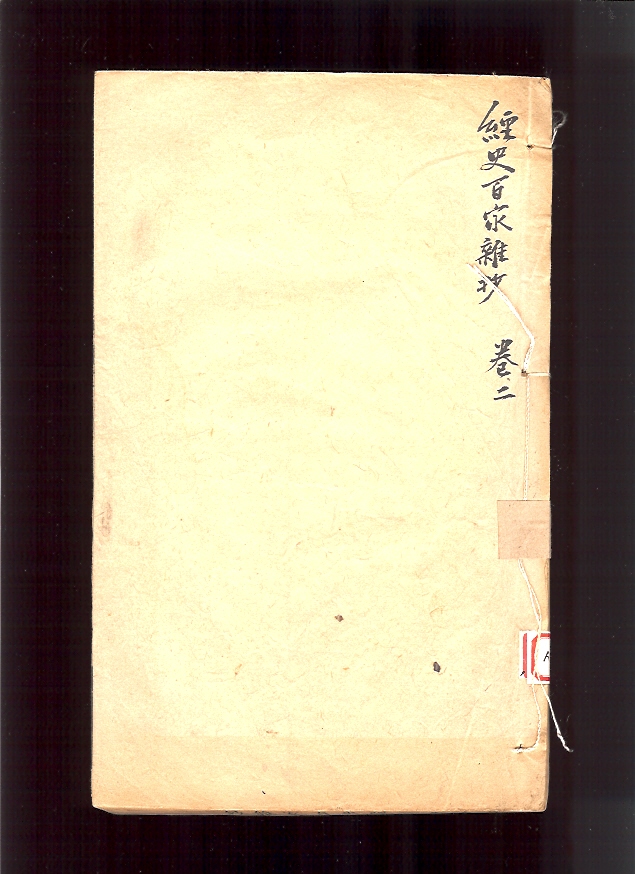 經史百家雜抄 卷二